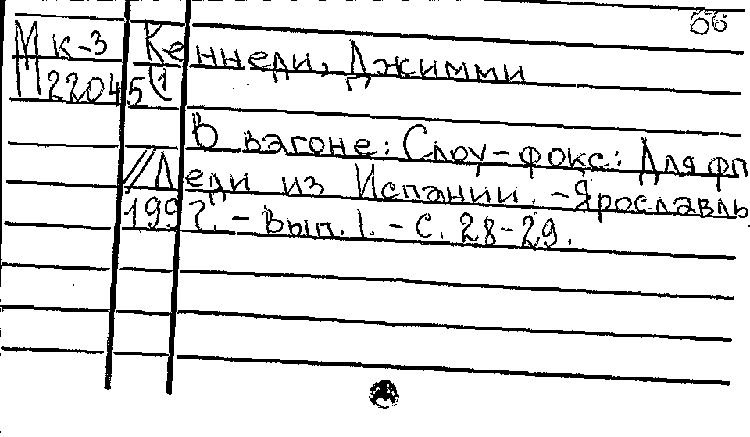 66
Мк-3 Кеннеди, Джимми
П22045(1
В вагоне: Слоу-фокс: Для фп
//Леди из Испании. - Ярославль
199?. - Вып. 1. - С. 28-29.